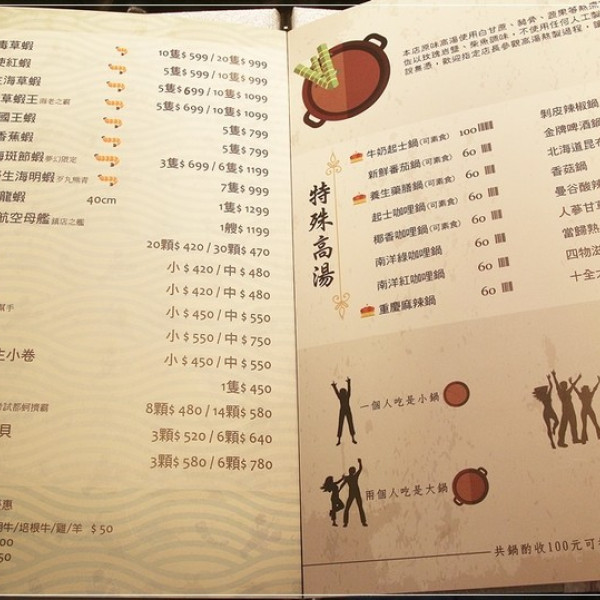 毒草蝦 10隻$599/20隻$999
使紅蝦 5隻$599/10隻$999
生海草蝦 5隻$699/10隻$1099
草蝦王 海老之霸 5隻$699/10隻$1099
國王蝦 5隻$799
香蕉蝦 5隻$799
海斑節蝦 夢幻限定 3隻$699/6隻$1199
生海明蝦 歹九熊青 7隻$999
龍蝦 40cm 1隻$1299
航空母艦 鎮店之艦 1艘$1199
20顆$420/30顆$470
小$420/中$480
小$420/中$480
幫手 小$450/中$550
小$550/中$750
生小卷 小$450/中$550
1隻$450
8顆$480/14顆$580
貝 3顆$520/6顆$640
3顆$580/6顆$780
惠
牛/培根牛/雞/羊 $50
00
50
本店原味高湯使用白甘蔗、豬骨、蔬果等熬
佐以玫瑰岩鹽、柴魚調味，不使用任何人工製
說無憑，歡迎指定店長參觀高湯熬製過程，
特殊高湯
牛奶起士鍋(可素食) 100
新鮮番茄鍋(可素食) 60
養生藥膳鍋(可素食) 60
起士咖哩鍋(可素食) 60
椰香咖哩鍋(可素食) 60
南洋綠咖哩鍋 60
南洋紅咖哩鍋 60
重慶麻辣鍋 60
剝皮辣椒鍋
金牌啤酒鍋
北海道昆布
香菇鍋
曼谷酸辣
人蔘甘
當歸熟
四物滋
十全
一個人吃是小鍋
兩個人吃是大鍋
共鍋酌收100元可